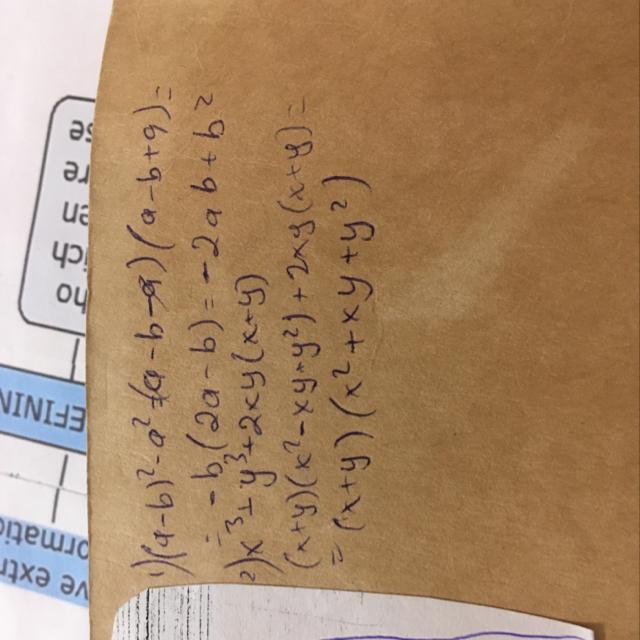 1) (a-b)²-a²=(a-b-a)(a-b+a)=
= -b(2a-b)=-2ab+b²
2) x³+y³+2xy(x+y)
(x+y)(x²-xy+y²)+2xy(x+y)=
= (x+y)(x²+xy+y²)
ho
ich
en
re
se
EFINING
ve extr
ormatio